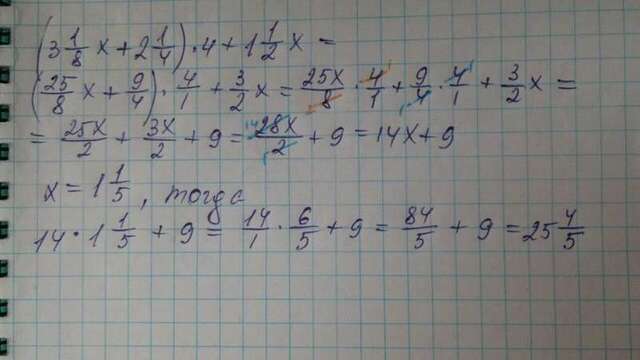 (3 1/8 x + 2 1/4) · 4 + 1 1/2 x =
(25/8 x + 9/4) · 4/1 + 3/2 x = 25x/8 · 4/1 + 9/4 · 4/1 + 3/2 x =
= 25x/2 + 3x/2 + 9 = 28x/2 + 9 = 14x + 9
x = 1 1/5, тогда
14 · 1 1/5 + 9 = 14/1 · 6/5 + 9 = 84/5 + 9 = 25 4/5